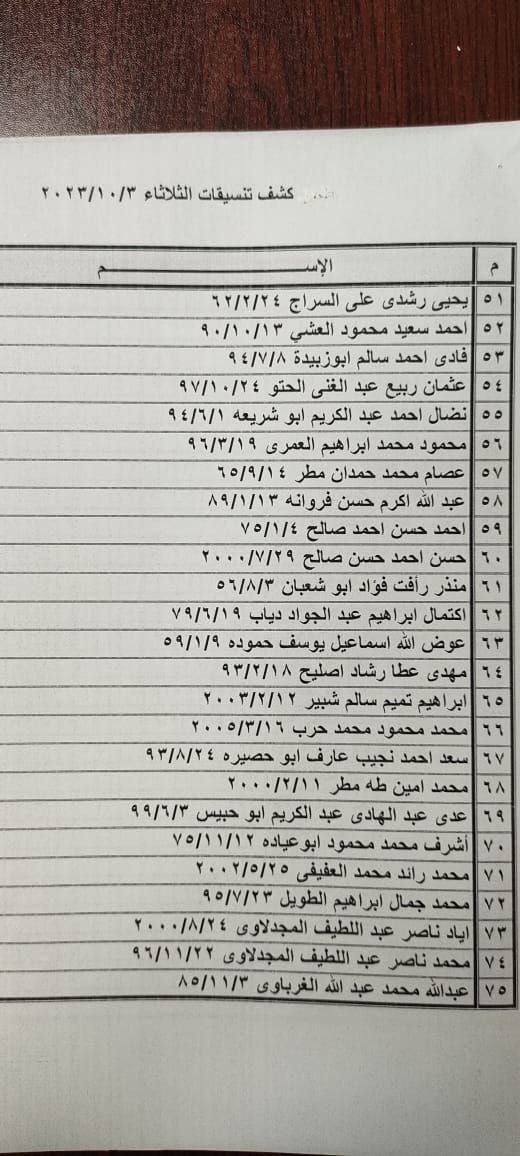 كشف تنسيقات الثلاثاء ٢٠٢٣/١٠/٣
م الإســـــــــــم
٥١ يحيى رشدى على السراج ٦٢/٢/٢٤
٥٢ احمد سعيد محمود العشي ٩٠/١٠/١٣
٥٣ فادى احمد سالم ابوزبيدة ٩٤/٧/٨
٥٤ عثمان ربيع عبد الغنى الحتو ٩٧/١٠/٢٤
٥٥ نضال احمد عبد الكريم ابو شريعه ٩٤/٦/١
٥٦ محمود محمد ابراهيم العمرى ٩٦/٣/١٩
٥٧ عصام محمد حمدان مطر ٦٥/٩/١٤
٥٨ عبد الله اكرم حسن فروانه ٨٩/١/١٣
٥٩ احمد حسن احمد صالح ٧٥/١/٤
٦٠ حسن احمد حسن صالح ٢٠٠٠/٧/٢٩
٦١ منذر رأفت فؤاد ابو شعبان ٥٦/٨/٣
٦٢ اكتمال ابراهيم عبد الجواد دياب ٧٩/٦/١٩
٦٣ عوض الله اسماعيل يوسف حموده ٥٩/١/٩
٦٤ مهدى عطا رشاد اصليح ٩٣/٢/١٨
٦٥ ابراهيم تميم سالم شبير ٢٠٠٣/٢/١٢
٦٦ محمد محمود محمد حرب ٢٠٠٥/٣/١٦
٦٧ سعد احمد نجيب عارف ابو حصيره ٩٣/٨/٢٤
٦٨ محمد امين طه مطر ٢٠٠٠/٢/١١
٦٩ عدى عبد الهادى عبد الكريم ابو حبيس ٩٩/٦/٣
٧٠ أشرف محمد محمود ابوعياده ٧٥/١١/١٢
٧١ محمد رائد محمد العفيفى ٢٠٠٢/٥/٢٥
٧٢ محمد جمال ابراهيم الطويل ٩٥/٧/٢٣
٧٣ اياد ناصر عبد اللطيف المجدلاوى ٢٠٠٠/٨/٢٤
٧٤ محمد ناصر عبد اللطيف المجدلاوى ٩٦/١١/٢٢
٧٥ عبدالله محمد عبد الله الغرباوى ٨٥/١١/٣